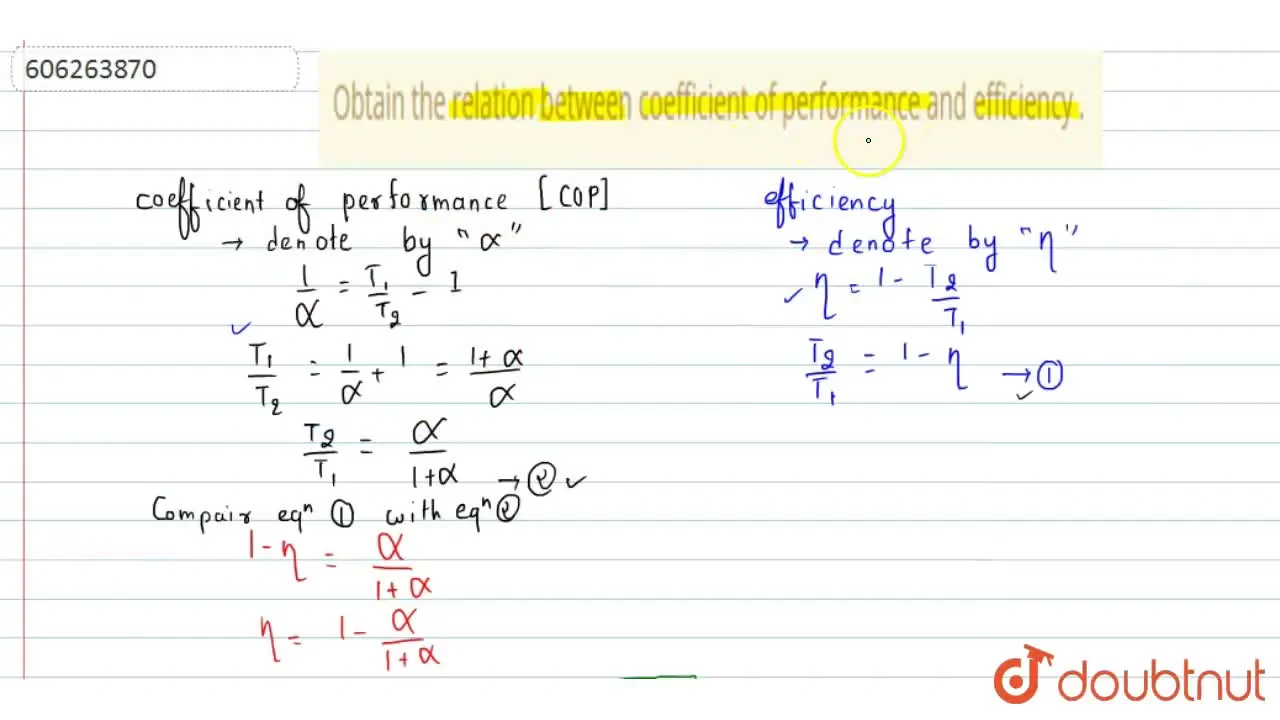 606263870
Obtain the relation between coefficient of performance and efficiency.
coefficient of performance [COP]
→ denote by "α"
1/α = T₁/T₂ - 1
✓
T₁/T₂ = 1/α + 1 = 1+α/α
T₂/T₁ = α/1+α → ② ✓
Compair eqⁿ ① with eqⁿ ②
1-η = α/1+α
η = 1 - α/1+α
efficiency
→ denote by "η"
✓ η = 1 - T₂/T₁
T₂/T₁ = 1 - η → ①
✓
doubtnut